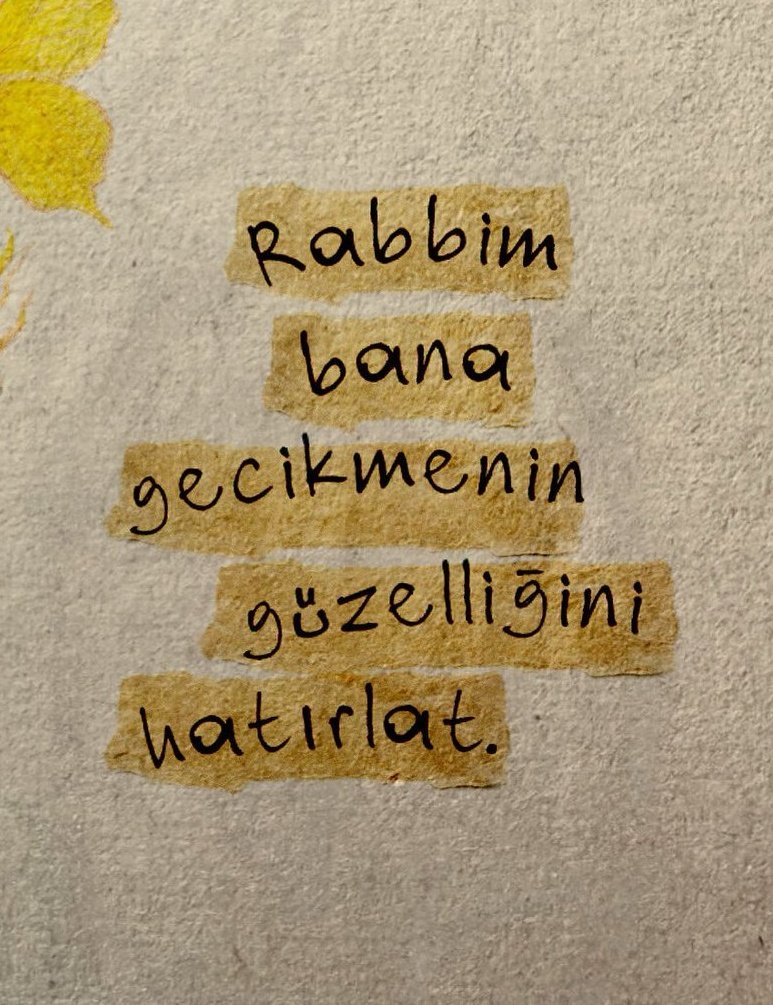 Rabbim
bana
gecikmenin
güzelliğini
hatırlat.